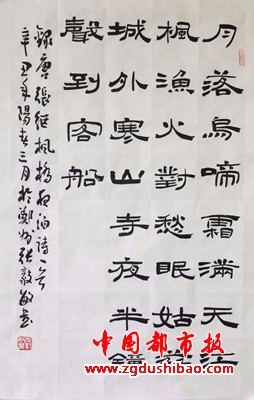 月落烏啼霜滿天江
楓漁火對愁眠姑蘇
城外寒山寺夜半鐘
聲到客船
錄唐張繼楓橋夜泊詩一首
辛丑年陽春三月於鄭州張毅敏書
中国都市报
www.zgdushibao.com